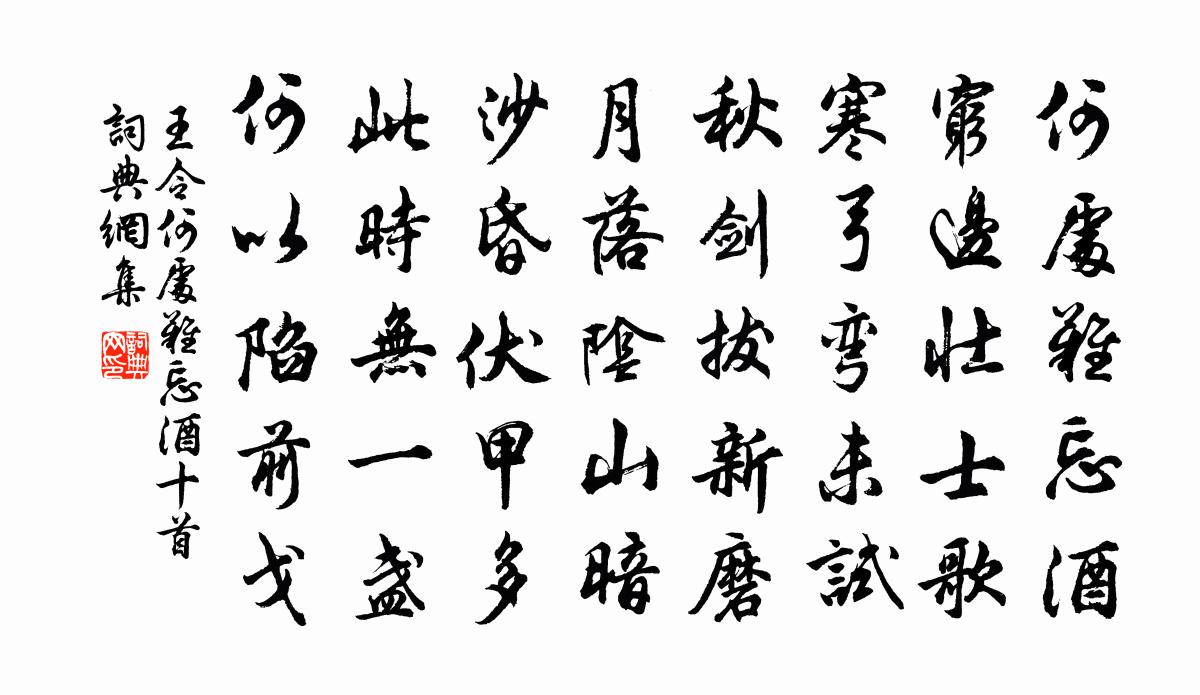 何處難忘酒
窮邊壯士歌
寒弓彎未試
秋劍拔新磨
月落陰山暗
沙昏伏甲多
此時無一盞
何以陷前戈
王令何處難忘酒十首
詞典網集
詞典网印